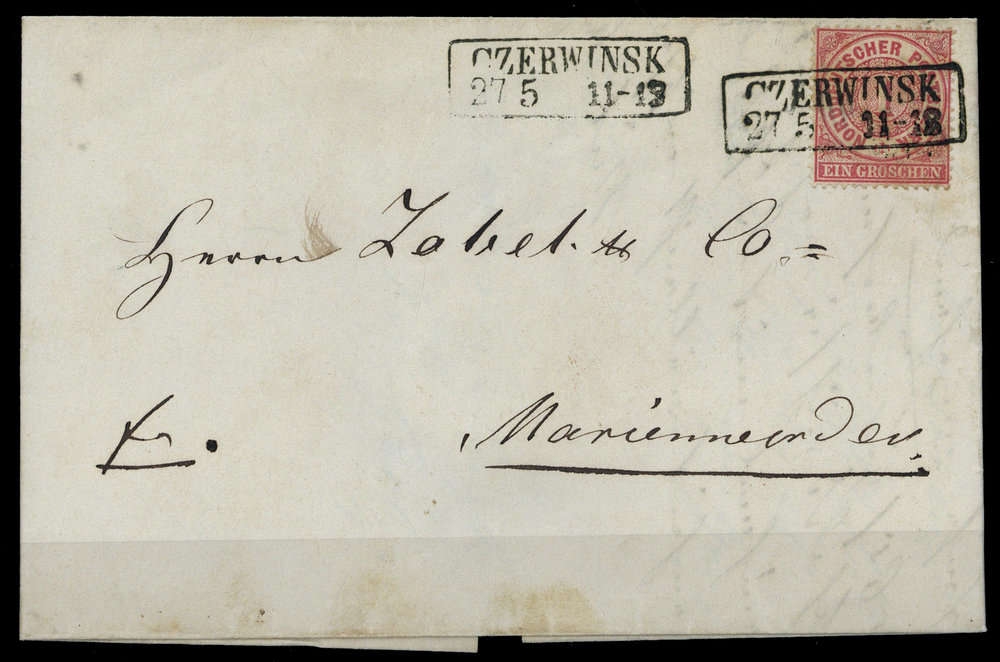 CZERWINSK
27 5 11-12
NORDDEUTSCHER
EIN GROSCHEN
CZERWINSK
27 5 11-12
Herrn Zobel & Co.=
fr.
Marienwerder.